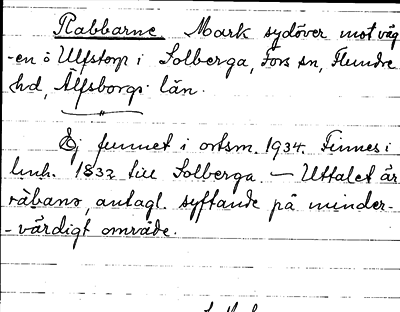 Rabbarne. Mark sydöver mot väg
-en ö Ulfstorp i Solberga, Fors sn, Flundre
hd, Älfsborgs län.
Ej funnet i ortsm. 1934. Finnes i
lmh. 1832 till Solberga. — Uttalet är
ràbano, antagl. syftande på minder-
-värdigt område.